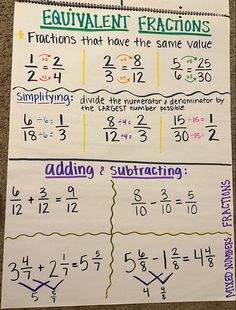 EQUIVALENT FRACTIONS
Fractions that have the same value
x2 x4 x5
1/2 = 2/4 2/3 = 8/12 5/6 = 25/30
x2 x4 x5
Simplifying: divide the numerator & denominator by
the LARGEST number possible
6÷6/18÷6 = 1/3 8÷4/12÷4 = 2/3 15÷15/30÷15 = 1/2
adding & subtracting:
6/12 + 3/12 = 9/12 8/10 - 3/10 = 5/10
3 4/7 + 2 1/7 = 5 5/7 5 6/8 - 1 2/8 = 4 4/8
MIXED NUMBERS FRACTIONS